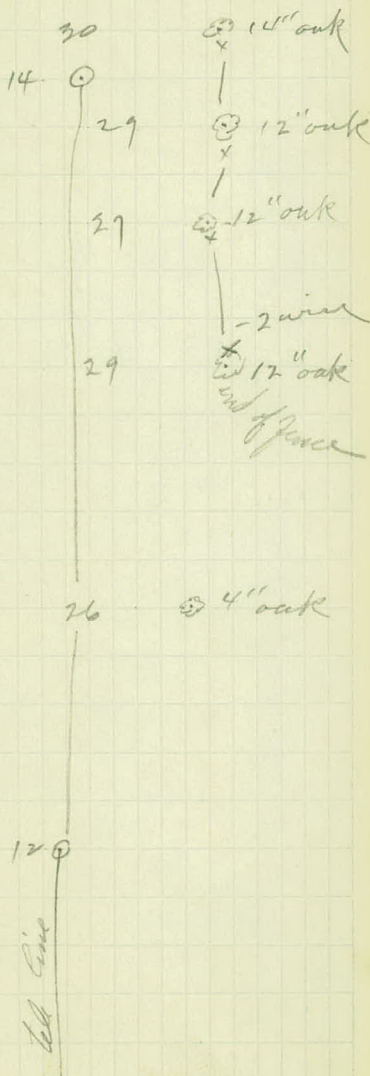 30 14" oak
14
29 12" oak
27 12" oak
- 2 wire
29 12" oak
end of fence
26 4" oak
12
tele line